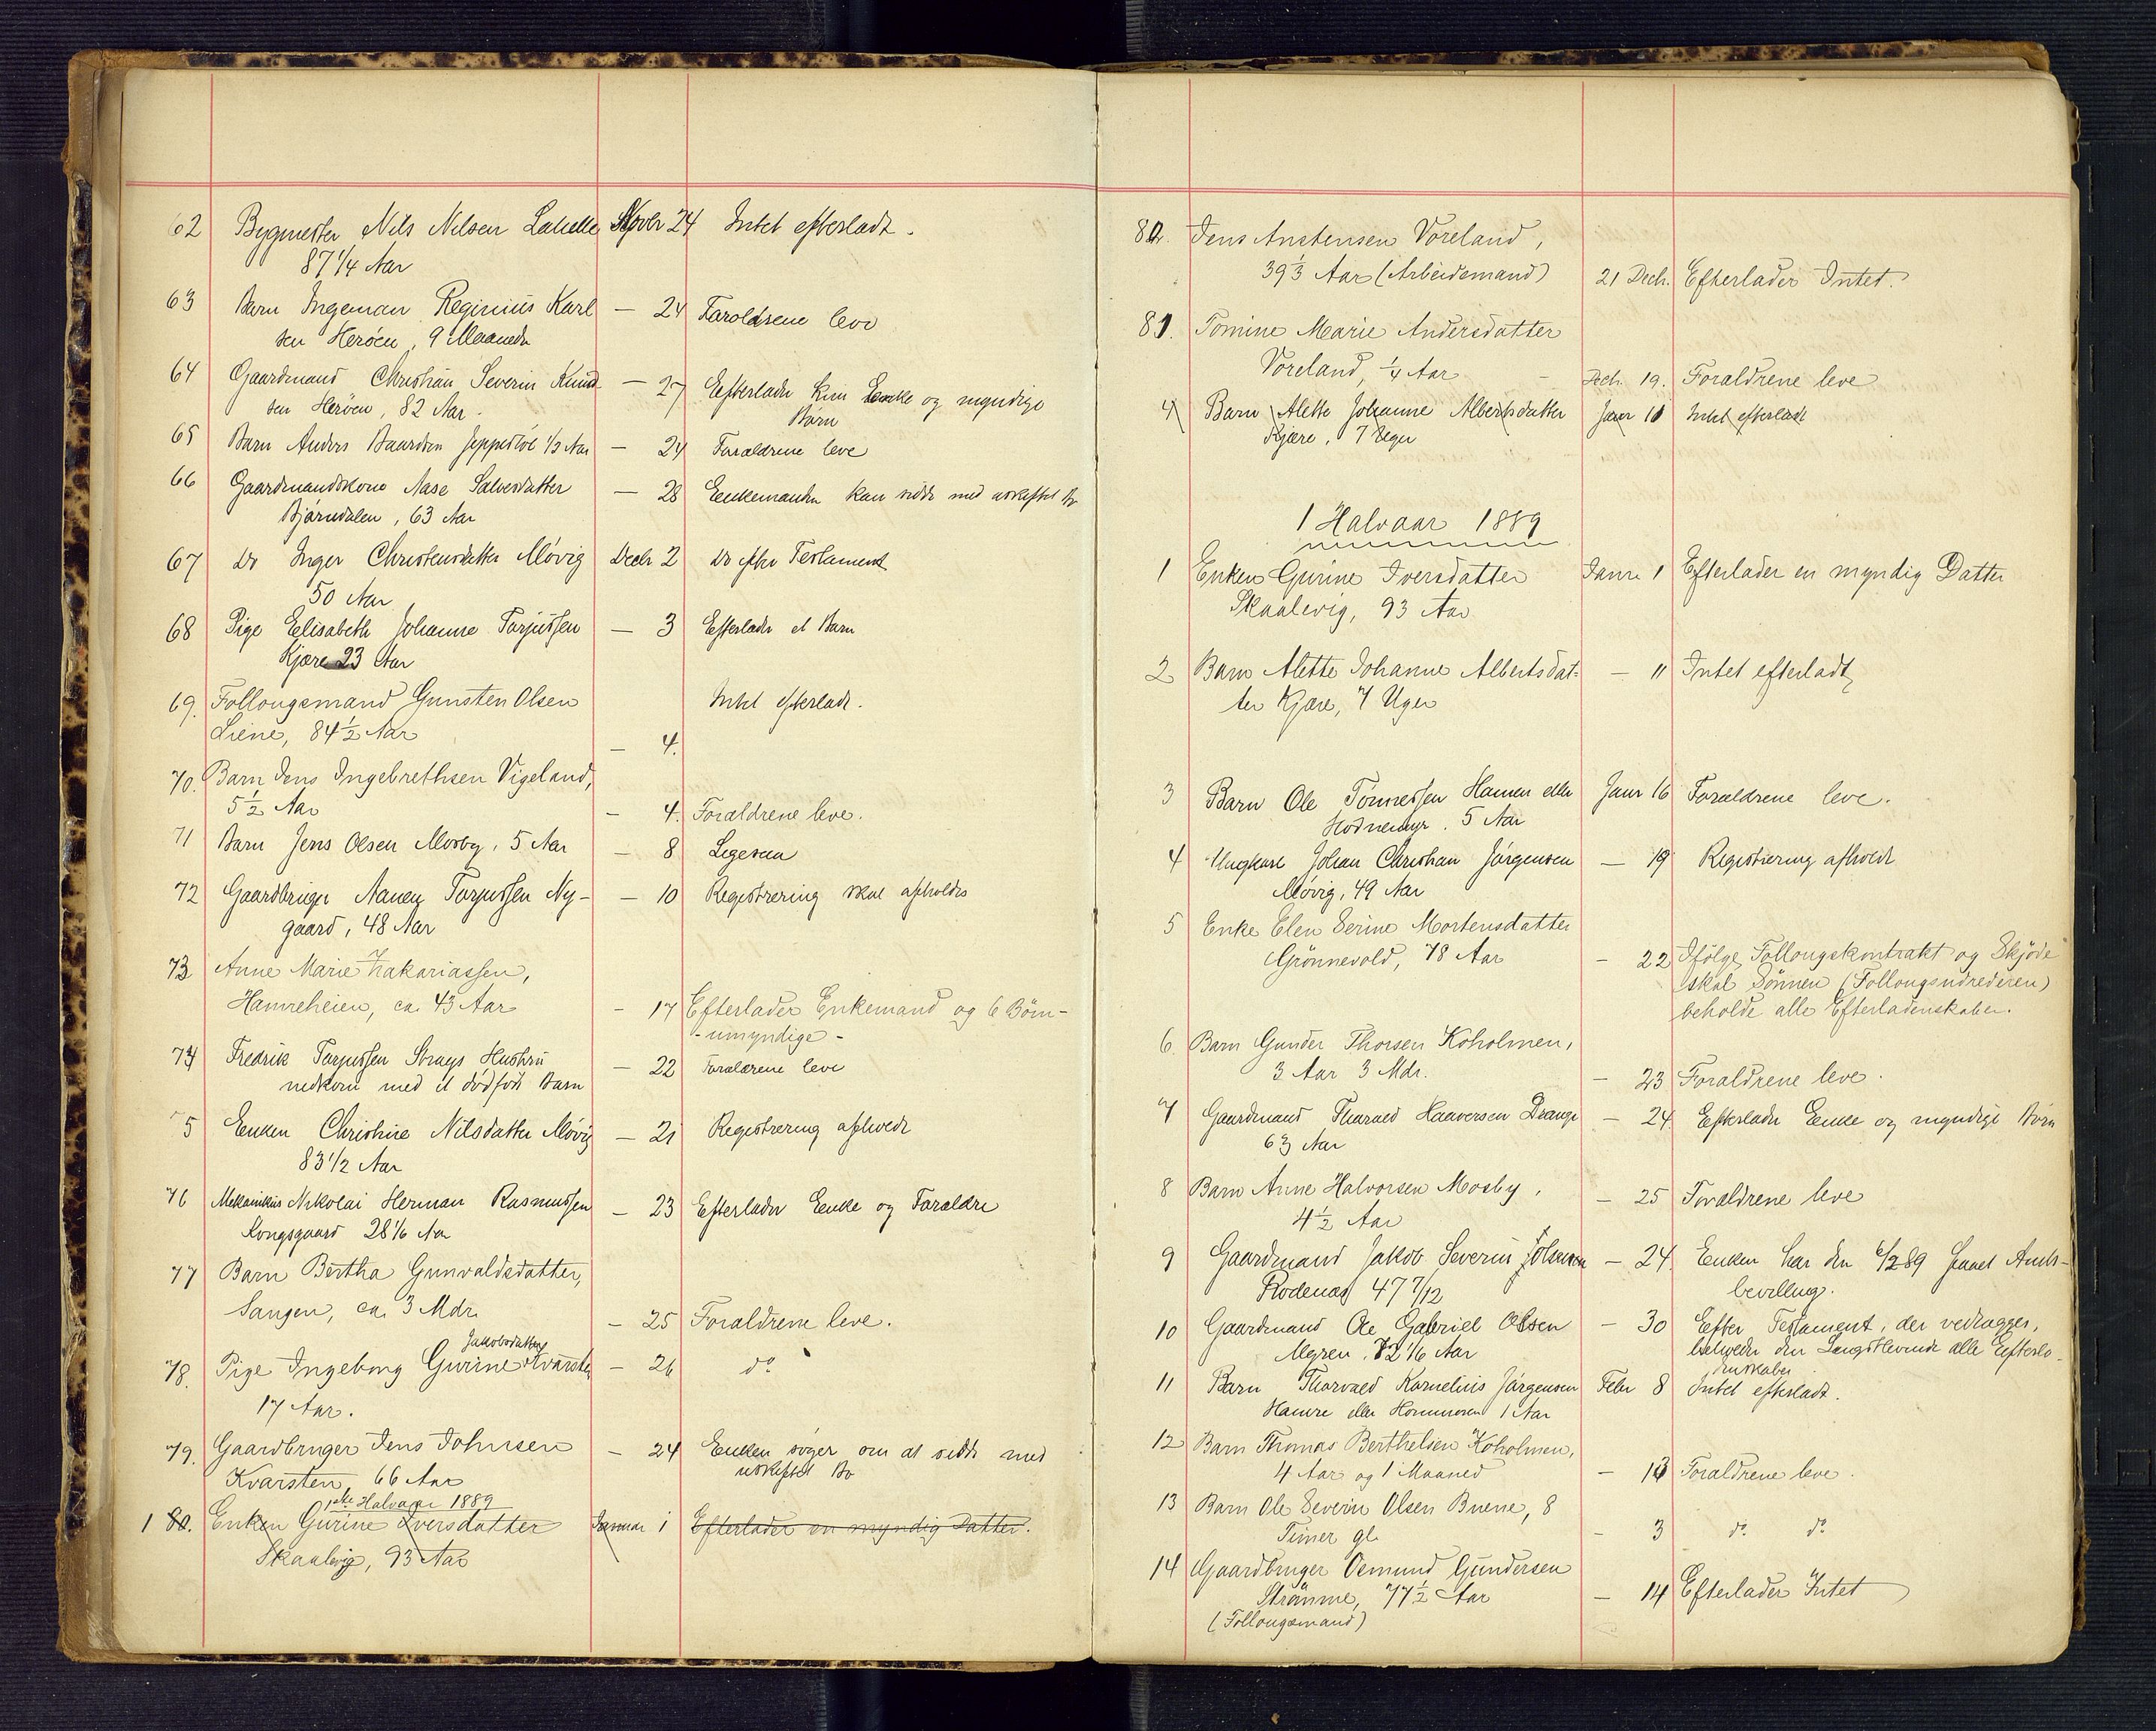 62 Bygmester Nils Nilsen Novbr 24 Intet efterladt.
87 1/4 Aar
63 Barn Ingeman Reginius Karl — 24 Foraldrene leve
sen Heröen, 9 Maaneder
64 Gaardmand Christian Severin Knud — 27 Efterlader kun Enke og myndige
sen Heröen, 82 Aar. Börn
65 Barn Anders Baardsen 1/3 Aar — 24 Foraldrene leve
66 Gaardmandskone Aase Salvesdatter — 28 Enkemanden kan sidde med uskiftet Bo
Bjørndalen, 63 Aar
67 Do Inger Christensdatter Mövig Decbr 2 Do efter Testament
50 Aar
68 Pige Elisabeth Johanne Torjussen — 3 Efterlader et Barn
Kjære 23 Aar
69. Follougsmand Gunsten Olsen Intet efterladt.
Liene, 84 1/2 Aar — 4.
70. Barn Jens Ingebrethsen Vigeland,
5 1/2 Aar — 4. Foraldrene leve.
71 Barn Jens Olsen Mosby, 5 Aar — 8 Ligesaa
72 Gaardbruger Aanen Torjussen Ny- — 10 Registrering skal afholdes
gaard, 48 Aar
73 Anne Marie Zakariassen,
Hamreheien, ca. 43 Aar — 17 Efterlader Enkemand og 6 Börn-
- umyndige -
74 Fredrik Torjussen Strays Hustru — 22 Foraldrene leve
nedkom med et dödfödt Barn
75 Enken Christine Nilsdatter Mövig — 21 Registrering afholdt
83 1/2 Aar
76 Mekanikus Nikolai Herman Rasmussen — 23 Efterlader Enke og Foraldre
Kongsgaard 28 1/6 Aar
77 Barn Bertha Gunvaldsdatter,
Sangen, ca. 3 Mdr. — 25 Foraldrene leve.
Jakobsdatter
78. Pige Ingeborg Gurine Kvarsten — 26 do
17 Aar.
79. Gaardbruger Jens Johnsen — 24 Enken söger om at sidde med
Kvarsten, 66 Aar uskiftet Bo
1ste Halvaar 1889
1 80. Enken Gurine Iversdatter Januar 1 Efterlader en myndig Datter.
Skaalevig, 93 Aar
80. Jens Anstensen Voreland,
39 1/3 Aar (Arbeidsmand) 21 Decb. Efterlader Intet.
81. Tomine Marie Andersdatter
Voreland, 1/4 Aar - Decb. 19. Foraldrene leve
4 Barn Alette Johanne Albertsdatter Janr 11 Intet efterladt
Kjære, 7 Uger
1 Halvaar 1889
1 Enken Gurine Iversdatter Janr. 1 Efterlader en myndig Datter
Skaalevig, 93 Aar
2 Barn Alette Johanne Albertsdat- — 11 Intet efterladt
ter Kjære, 7 Uger
3 Barn Ole Tönnessen Hamre eller Janr 16 Foraldrene leve.
Hodnemyr. 5 Aar
4 Ungkarl Johan Christian Jörgensen — 19 Registrering afholdt
Mövig, 49 Aar
5 Enke Elen Serine Mortensdatter
Grönnevold, 78 Aar — 22 Ifölge Follougskontrakt og Skjöde
skal Sönnen (Follougsudrederen)
beholde alle Efterladenskaber.
6. Barn Gunder Thorsen Koholmen,
3 Aar 3 Mdr. — 23 Foraldrene leve.
7 Gaardmand Tharald Haaversen Drange — 24 Efterlader Enke og myndige Börn
63 Aar
8 Barn Anne Halvorsen Mosby, — 25 Foraldrene leve
4 1/2 Aar
9 Gaardmand Jakob Severin Johnsen — 24 Enken har den 6/2 89 faaet Amts-
Rodenas 47 7/12 bevilling.
10 Gaardmand Ole Gabriel Olsen — 30 Efter Testament, der vedlægges,
Myren, 72 1/6 Aar beholder den Længstlevende alle Efterla-
denskaber
11 Barn Thorvald Kornelius Jörgensen Febr 8 Intet efterladt.
Hamre eller 1 Aar
12 Barn Thomas Berthelsen Koholmen,
4 Aar og 1 Maaned — 13 Foraldrene leve.
13 Barn Ole Severin Olsen Buene, 8
Timer gl. — 3 do do
14 Gaardbruger Osmund Gundersen
Strömme, 77 1/2 Aar — 14 Efterlader Intet
(Follougsmand)